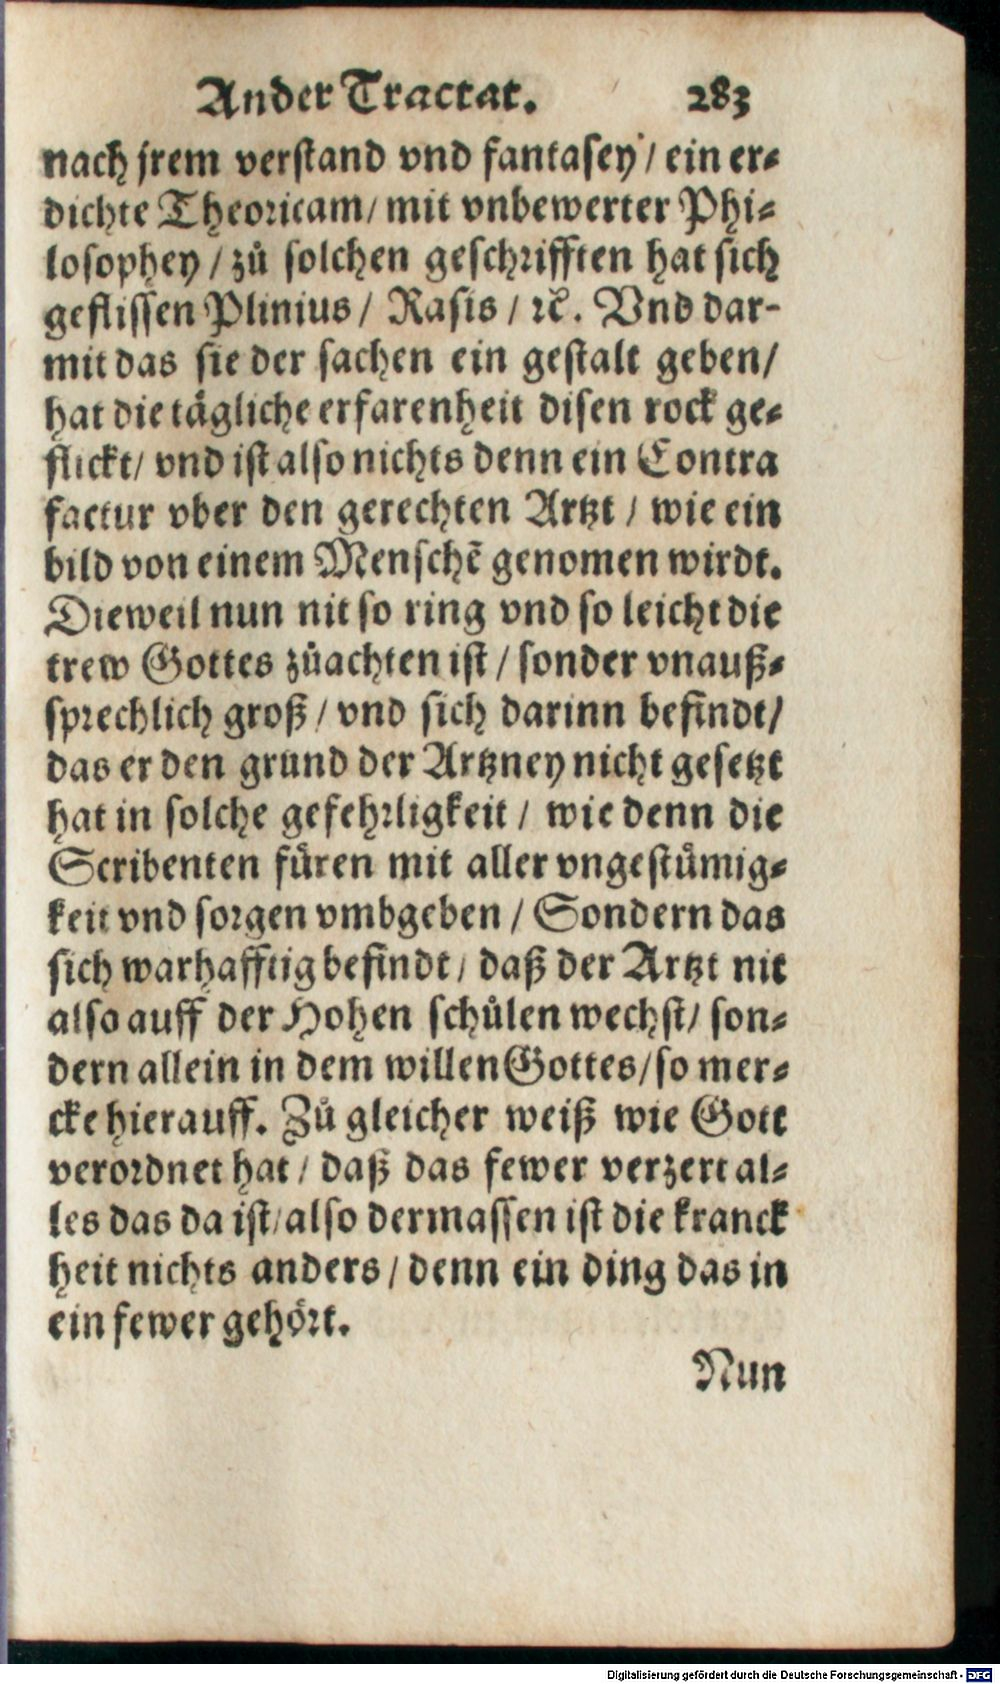 Ander Tractat. 283
nach jrem verstand vnd fantasey / ein er-
dichte Theoricam / mit vnbewerter Phi-
losophey / zů solchen geschrifften hat sich
geflissen Plinius / Rasis / ꝛc̃. Vnd dar-
mit das sie der sachen ein gestalt geben /
hat die tägliche erfarenheit disen rock ge-
flickt / vnd ist also nichts denn ein Contra
factur vber den gerechten Artzt / wie ein
bild von einem Menschẽ genomen wirdt.
Dieweil nun nit so ring vnd so leicht die
trew Gottes zůachten ist / sonder vnauß-
sprechlich groß / vnd sich darinn befindt /
das er den grund der Artzney nicht gesetzt
hat in solche gefehrligkeit / wie denn die
Scribenten füren mit aller vngestümig-
keit vnd sorgen vmbgeben / Sondern das
sich warhafftig befindt / daß der Artzt nit
also auff der Hohen schůlen wechst / son-
dern allein in dem willen Gottes / so mer-
cke hierauff. Zů gleicher weiß wie Gott
verordnet hat / daß das fewer verzert al-
les das da ist / also dermassen ist die kranck
heit nichts anders / denn ein ding das in
ein fewer gehört.
Nun
Digitalisierung gefördert durch die Deutsche Forschungsgemeinschaft - DFG